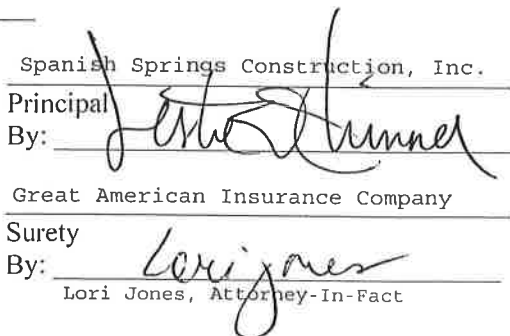 Spanish Springs Construction, Inc.
Principal
By:
Great American Insurance Company
Surety
By: Lori Jones
Lori Jones, Attorney-In-Fact